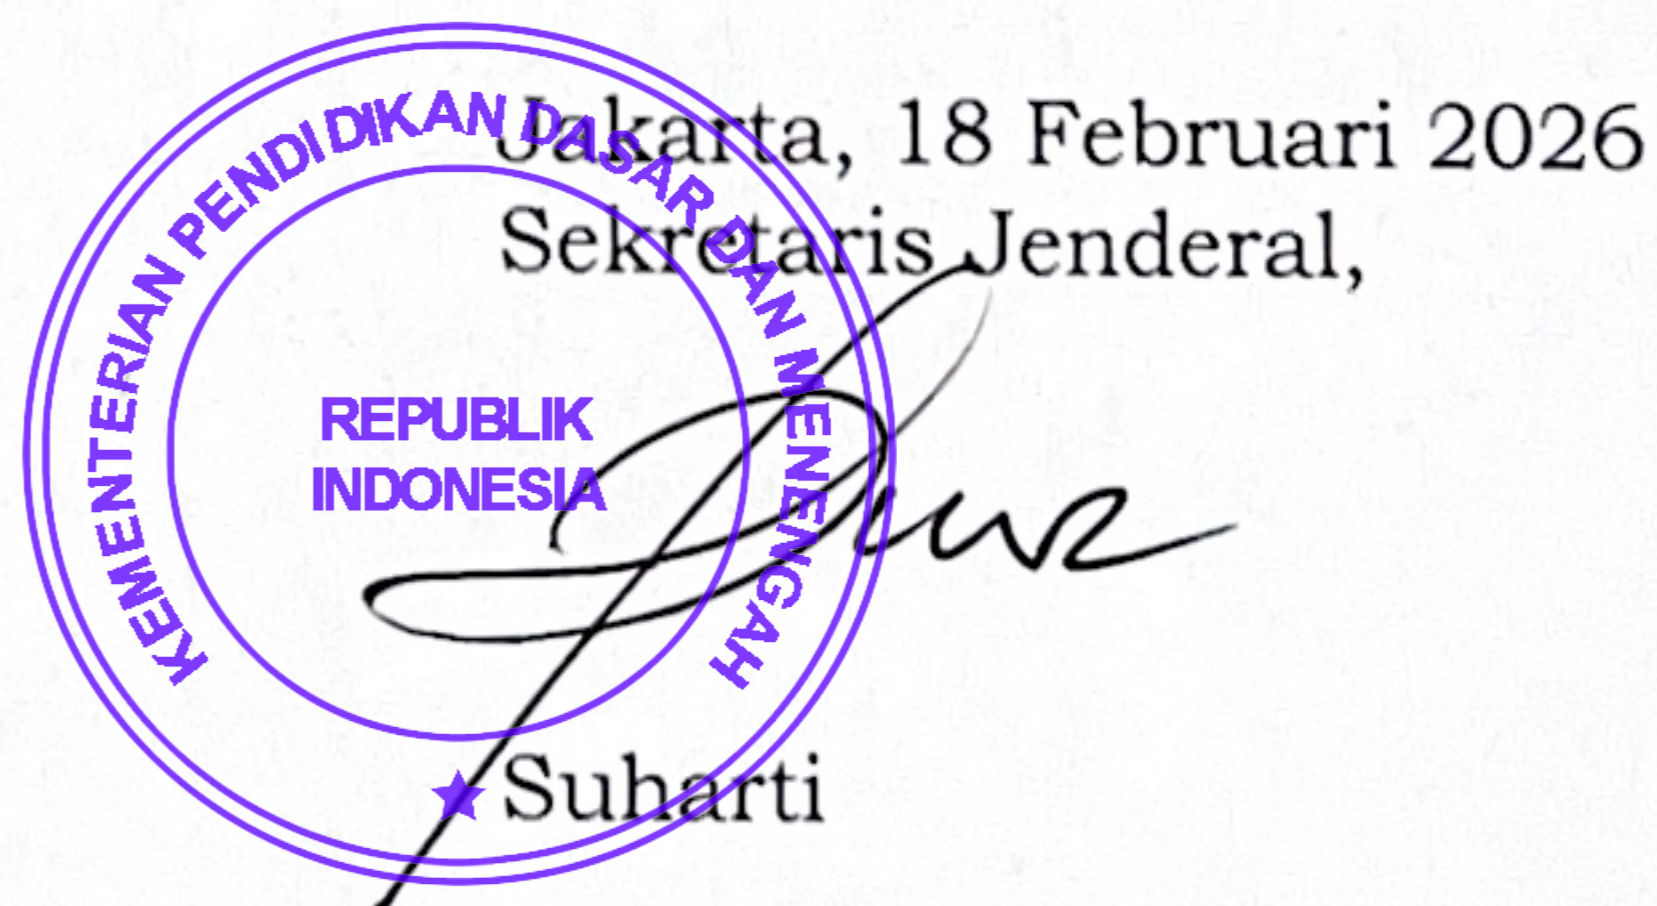 Jakarta, 18 Februari 2026
Sekretaris Jenderal,
KEMENTERIAN PENDIDIKAN DASAR DAN MENENGAH
REPUBLIK
INDONESIA
Suharti